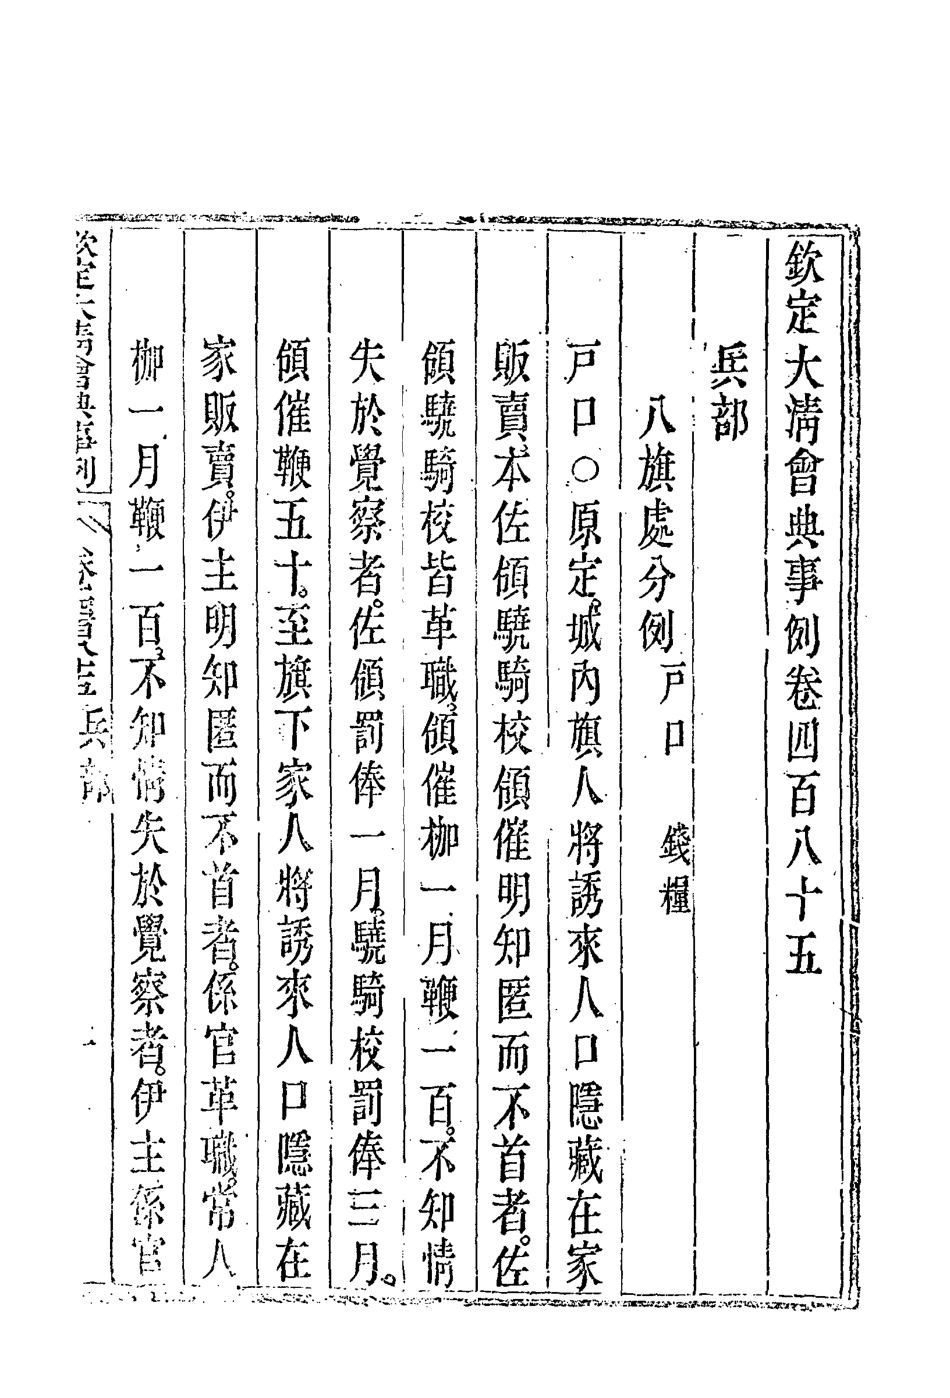 欽定大淸會典事例卷四百八十五
兵部
八旗處分例戸口 錢糧
戸口○原定。城內旗人將誘來人口隱藏在家
販賣、本佐領驍騎校領催明知匿而不首者。佐
領驍騎校皆革職。領催枷一月鞭一百。不知情
失於覺察者。佐領罰俸一月。驍騎校罰俸三月。
領催鞭五十。至旗下家人將誘來人口隱藏在
家販賣。伊主明知匿而不首者。係官革職。常人
枷一月鞭一百。不知情失於覺察者。伊主係官
欽定大淸會典事例 兵部 一